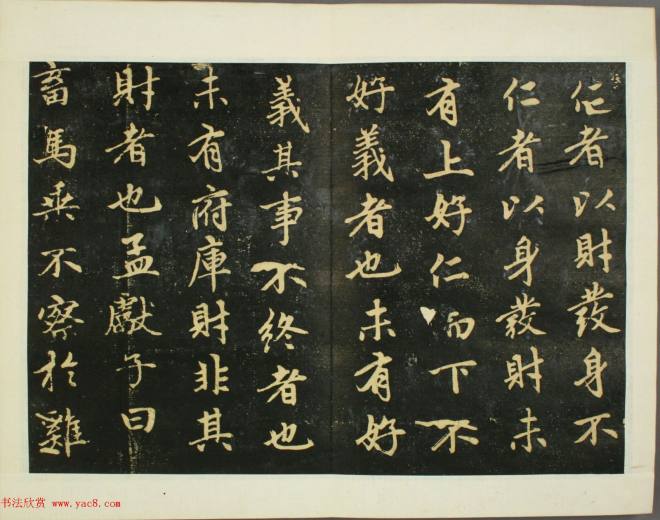 仁者以財發身不
仁者以身發財未
有上好仁而下不
好義者也未有好
義其事不終者也
未有府庫財非其
財者也孟獻子曰
畜馬乘不察於雞
书法欣赏 www.yac8.com